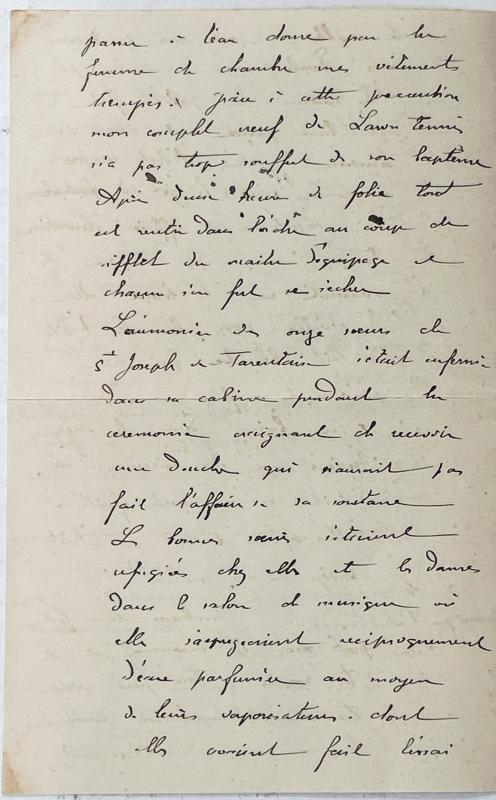 passer à l'eau douce par la
femme de chambre mes vêtements
trempés. Grâce à cette precaution
mon complet neuf de Lawn tennis
n'a pas trop souffert de son baptême
Après deux heures de folie tout
est rentré dans l'ordre au coup de
sifflet du maitre d'équipage et
chacun s'en fut se sécher
L'aumonier des onze sœurs de
St Joseph de Tarentaise s'était enfermé
dans sa cabine pendant la
ceremonie craignant de recevoir
une douche qui n'aurait pas
fait l'affaire de sa soutane
Les bonnes sœurs s'étaient
refugiées chez elles et les dames
dans le salon de musique où
elles s'aspergeaient reciproquement
d'eau parfumée au moyen
de leurs vaporisateurs. dont
elles avaient fait l'essai